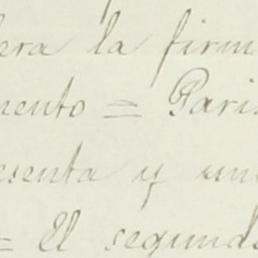 era la firm
mento = Paris
esenta y un
= El segund